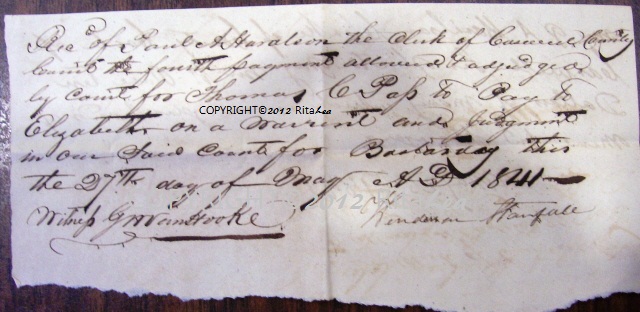 Rec'd of Paul A Haralson the Clerk of Caswell County
Court the fourth payment allowed & adjudged
by Court for Thomas C Pass to Pay to
COPYRIGHT©2012 RitaLea
Elizabeth on a Warrent and Judgment
in our Said Court for Bastarday this
the 27th day of May AD 1841
Witness G W VanHooke